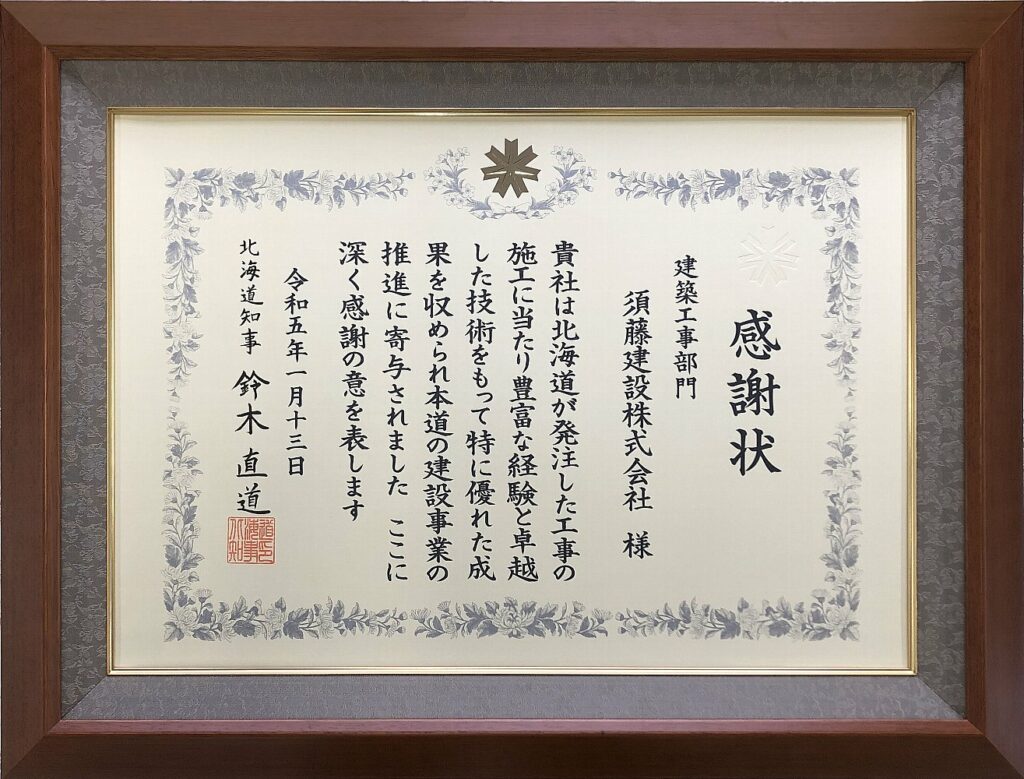 感謝状
建築工事部門
須藤建設株式会社 様
貴社は北海道が発注した工事の
施工に当たり豊富な経験と卓越
した技術をもって特に優れた成
果を収められ本道の建設事業の
推進に寄与されました ここに
深く感謝の意を表します
令和五年一月十三日
北海道知事 鈴木直道
北海道知事之印